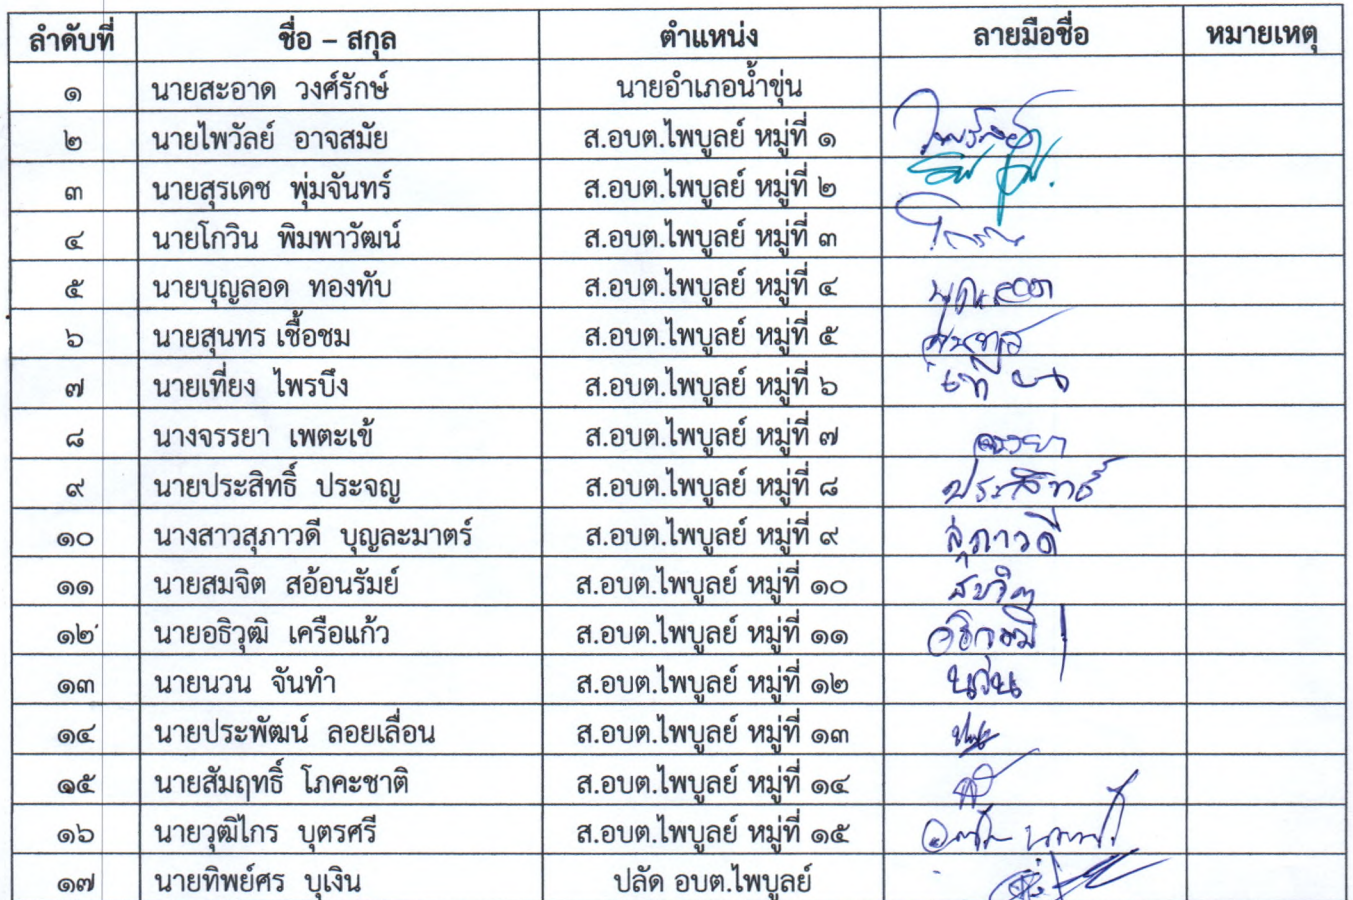 ลำดับที่ ชื่อ – สกุล ตำแหน่ง ลายมือชื่อ หมายเหตุ
๑ นายสะอาด วงศ์รักษ์ นายอำเภอน้ำขุ่น
๒ นายไพวัลย์ อาจสมัย ส.อบต.ไพบูลย์ หมู่ที่ ๑ ไพวัลย์
๓ นายสุรเดช พุ่มจันทร์ ส.อบต.ไพบูลย์ หมู่ที่ ๒
๔ นายโกวิน พิมพาวัฒน์ ส.อบต.ไพบูลย์ หมู่ที่ ๓
๕ นายบุญลอด ทองทับ ส.อบต.ไพบูลย์ หมู่ที่ ๔ บุญลอด
๖ นายสุนทร เชื้อชม ส.อบต.ไพบูลย์ หมู่ที่ ๕ สุนทร
๗ นายเที่ยง ไพรบึง ส.อบต.ไพบูลย์ หมู่ที่ ๖ เที่ยง
๘ นางจรรยา เพตะเข้ ส.อบต.ไพบูลย์ หมู่ที่ ๗ จรรยา
๙ นายประสิทธิ์ ประจญ ส.อบต.ไพบูลย์ หมู่ที่ ๘ ประสิทธิ์
๑๐ นางสาวสุภาวดี บุญละมาตร์ ส.อบต.ไพบูลย์ หมู่ที่ ๙ สุภาวดี
๑๑ นายสมจิต สอ้อนรัมย์ ส.อบต.ไพบูลย์ หมู่ที่ ๑๐ สมจิต
๑๒ นายอธิวุฒิ เครือแก้ว ส.อบต.ไพบูลย์ หมู่ที่ ๑๑ อธิวุฒิ
๑๓ นายนวน จันทำ ส.อบต.ไพบูลย์ หมู่ที่ ๑๒ นวน
๑๔ นายประพัฒน์ ลอยเลื่อน ส.อบต.ไพบูลย์ หมู่ที่ ๑๓
๑๕ นายสัมฤทธิ์ โภคะชาติ ส.อบต.ไพบูลย์ หมู่ที่ ๑๔
๑๖ นายวุฒิไกร บุตรศรี ส.อบต.ไพบูลย์ หมู่ที่ ๑๕
๑๗ นายทิพย์ศร บุเงิน ปลัด อบต.ไพบูลย์